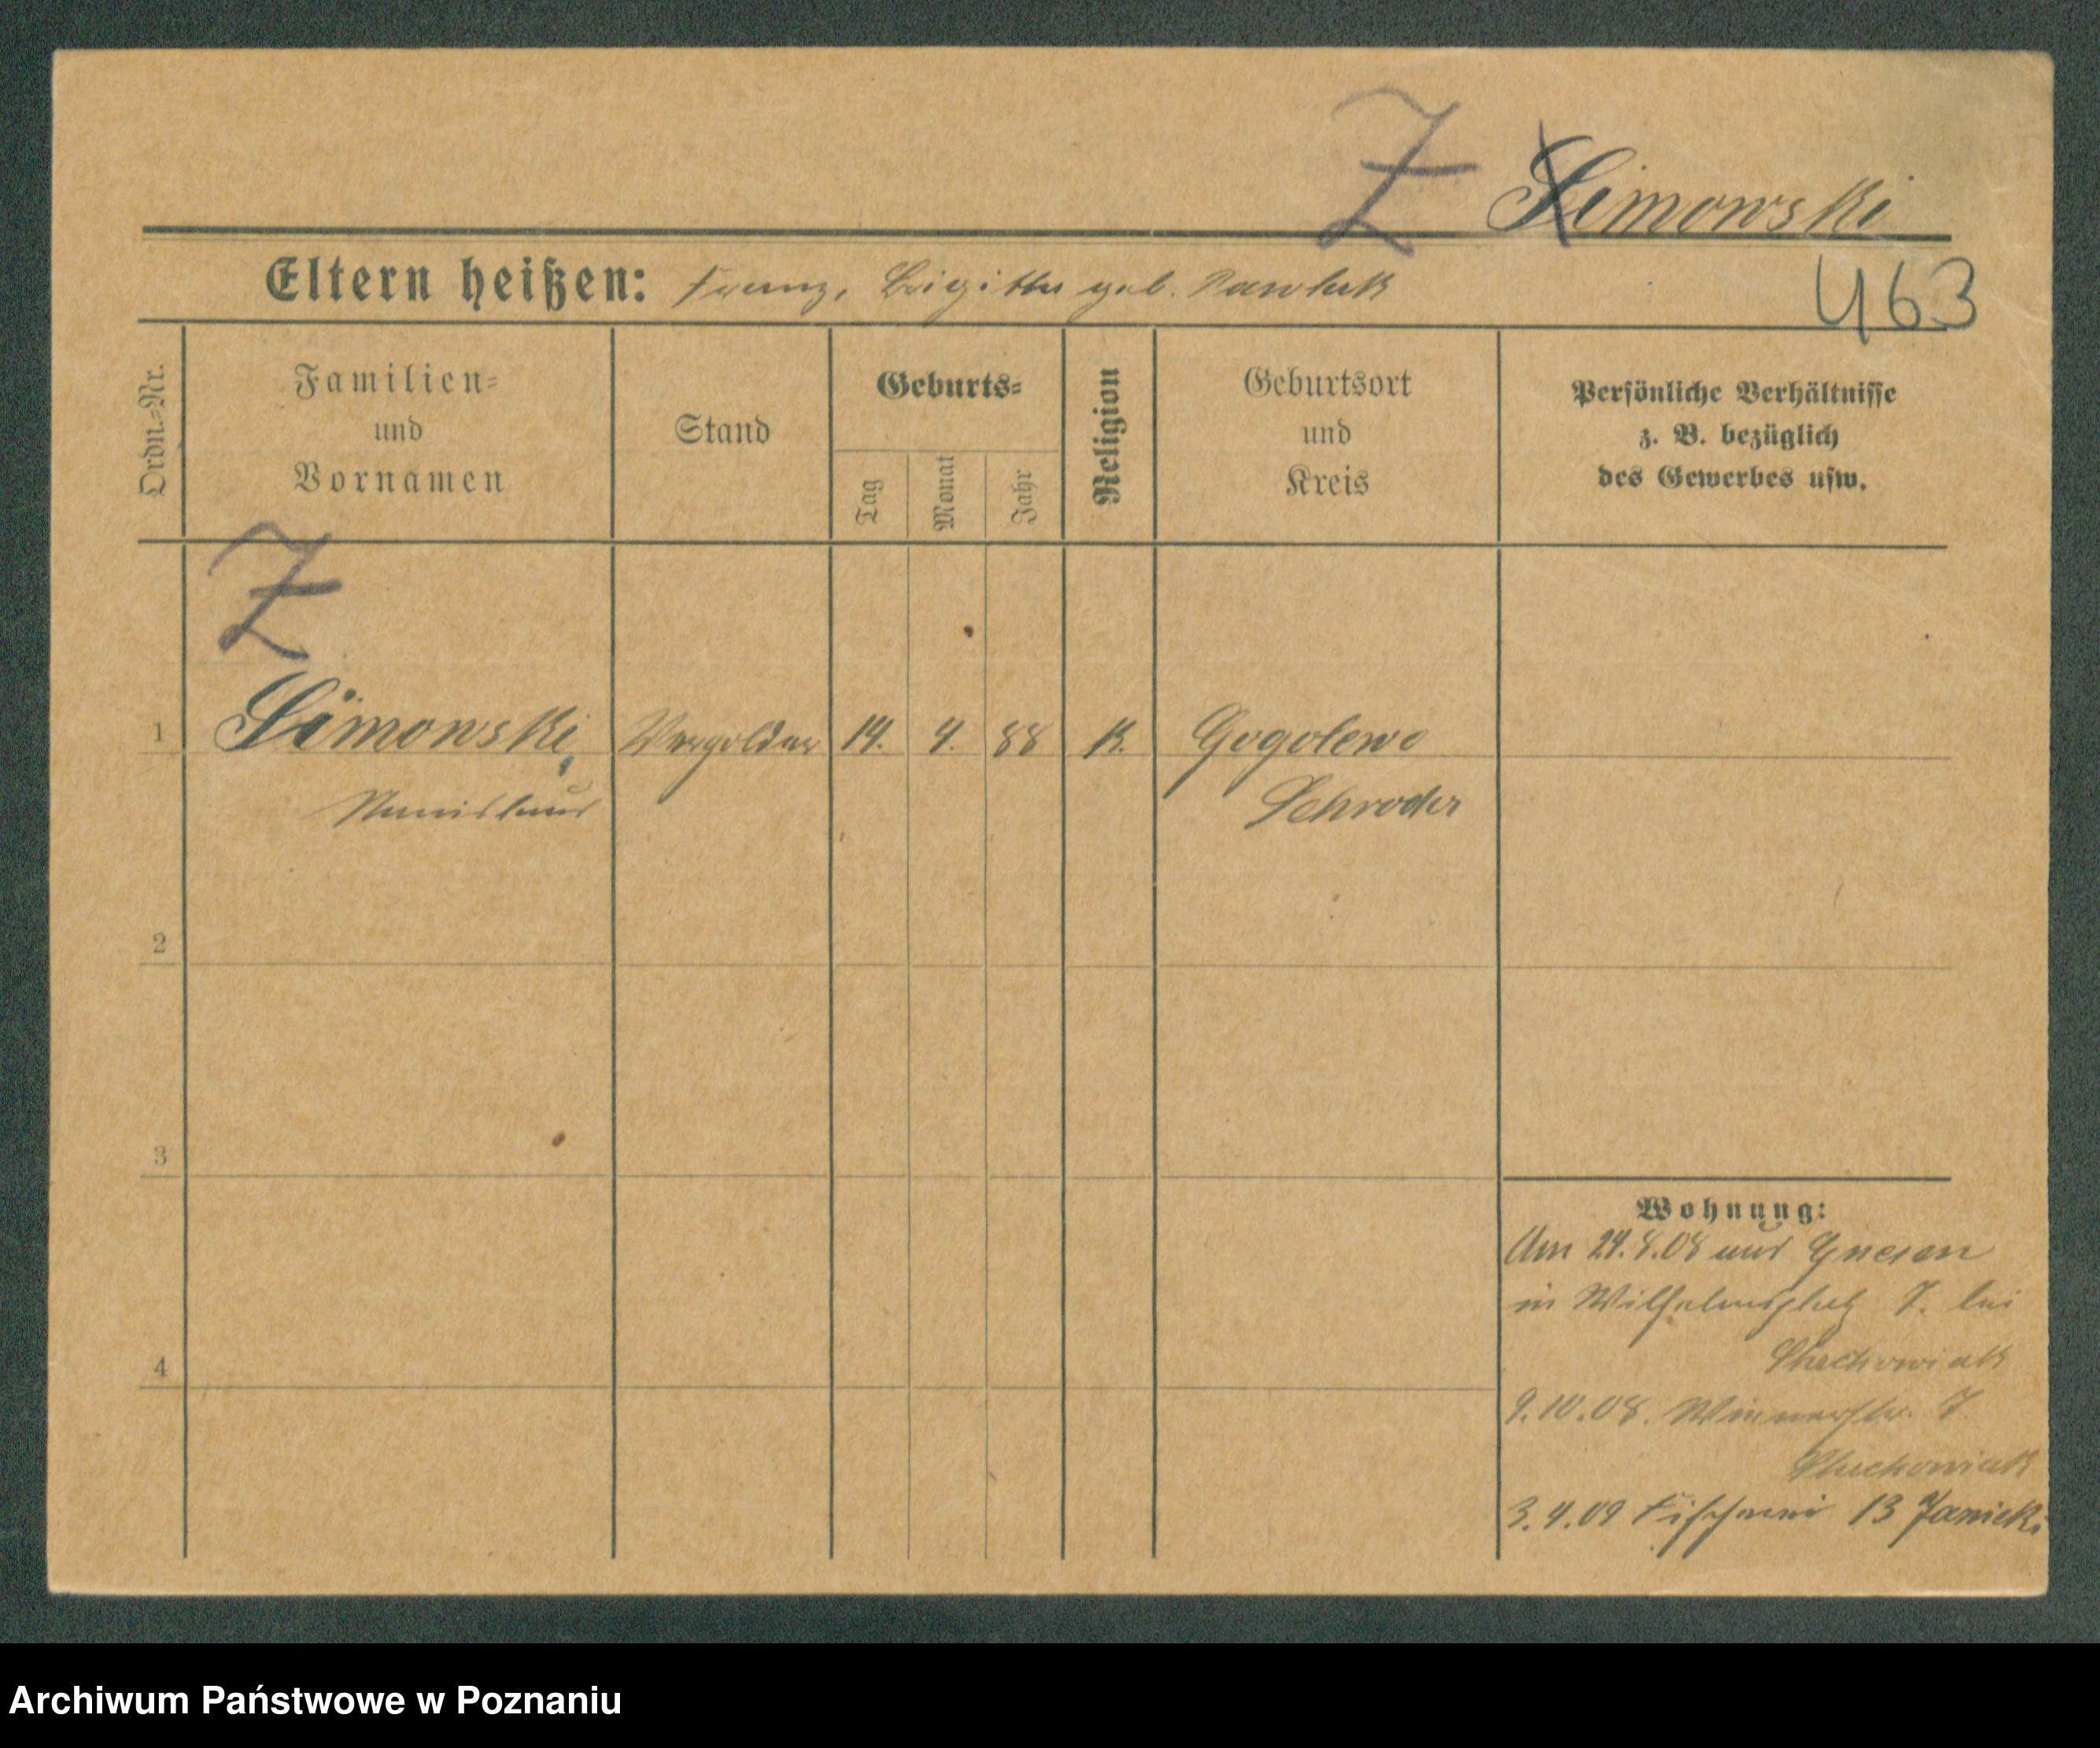 Z Simowski
463
Eltern heißen: Franz, Brigitta geb. Pawlak
Ordn.=Nr.
Familien=
und
Vornamen
Stand
Geburts=
Tag
Monat
Jahr
Religion
Geburtsort
und
Kreis
Persönliche Verhältnisse
z. B. bezüglich
des Gewerbes usw.
Z
1 Simowski, Vergolder 14. 4. 88 K. Gogolewo
Stanislaus Schroda
2
3
4
Wohnung:
Am 24.8.08 aus Gnesen
in Wilhelmsplatz 7. bei
9.10.08. 7.
3.4.09 Fischerei 13 Janicki
Archiwum Państwowe w Poznaniu